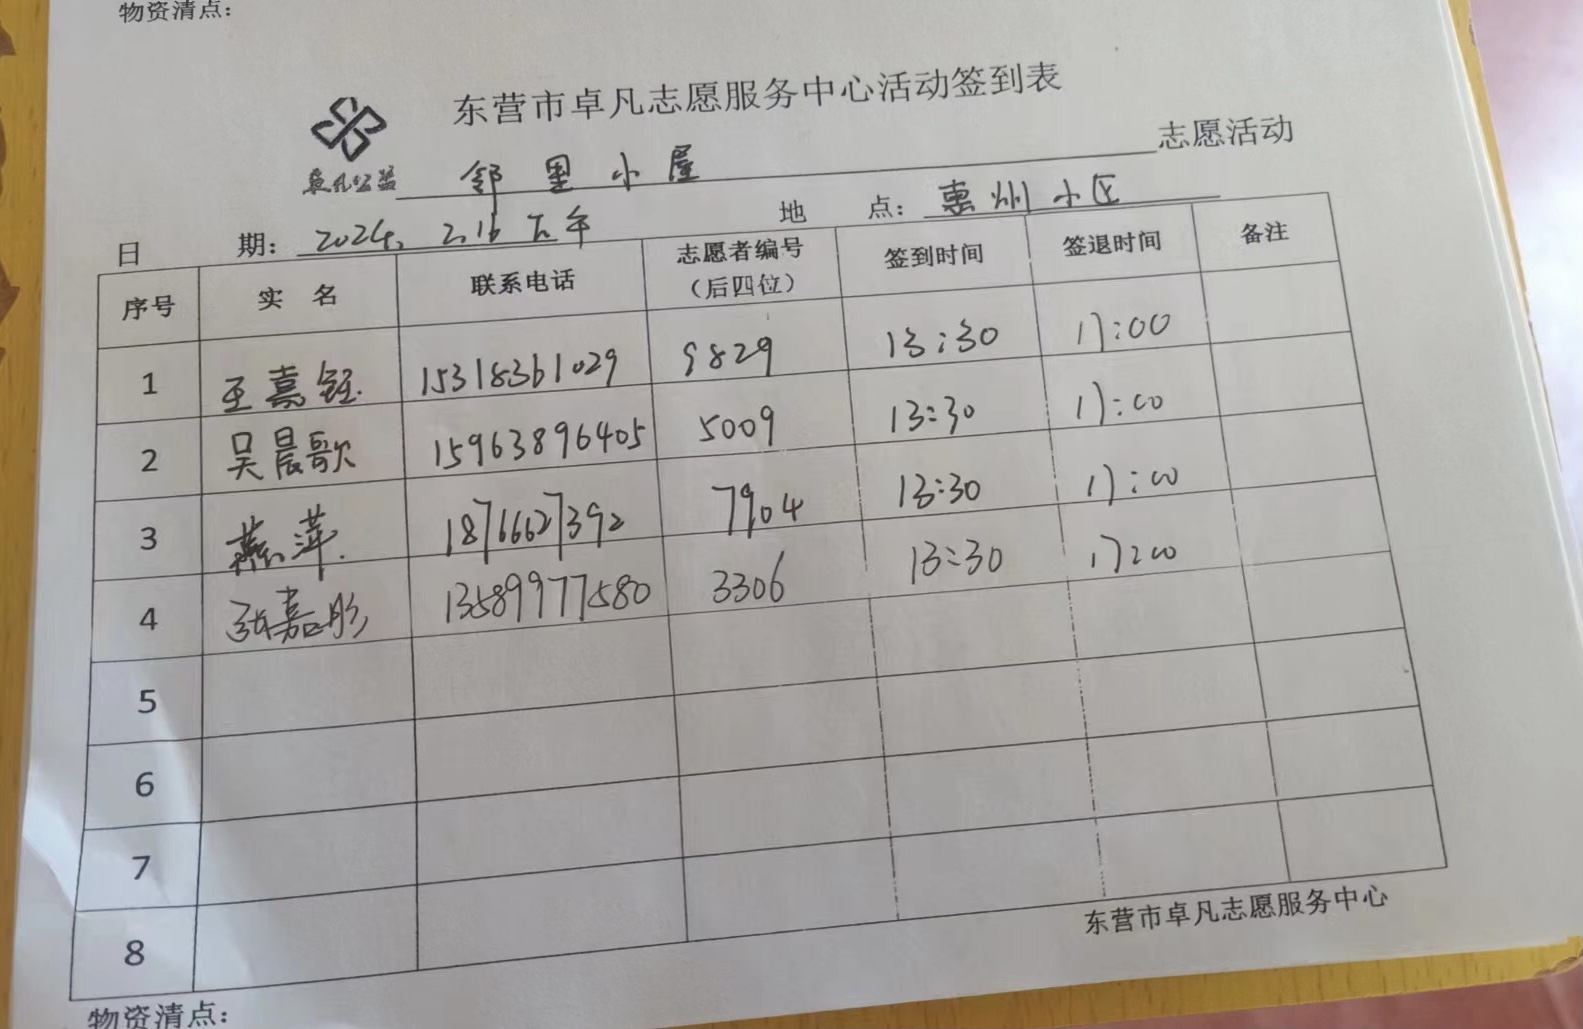 物资清点：
东营市卓凡志愿服务中心活动签到表
卓凡公益 邻里小屋 志愿活动
日 期：2024.2.16下午 地 点：惠州小区
序号 实 名 联系电话 志愿者编号（后四位） 签到时间 签退时间 备注
1 王嘉钰 15318361029 9829 13:30 17:00
2 吴晨歌 15963896405 5009 13:30 17:00
3 燕萍 18766627392 7904 13:30 17:00
4 张嘉彤 13589977580 3306 13:30 17:00
5
6
7
8
东营市卓凡志愿服务中心
物资清点：